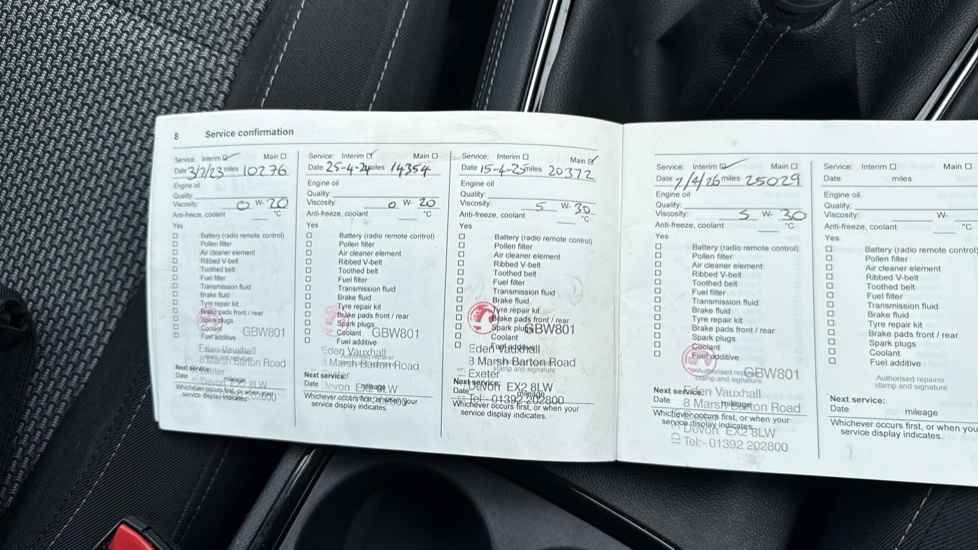 8 Service confirmation
Service: Interim ☑ Main ☐
Date 3/2/23 miles 10276
Engine oil
Quality:
Viscosity: 0 W- 20
Anti-freeze, coolant °C
Yes
☐ Battery (radio remote control)
☐ Pollen filter
☐ Air cleaner element
☐ Ribbed V-belt
☐ Toothed belt
☐ Fuel filter
☐ Transmission fluid
☐ Brake fluid
☐ Tyre repair kit
☐ Brake pads front / rear
☐ Spark plugs
☐ Coolant GBW801
☐ Fuel additive
Eden Vauxhall
8 Marsh Barton Road
Exeter
Next service:
Date
Devon EX2 8LW
Whichever occurs first, or when your
service display indicates.
Service: Interim ☑ Main ☐
Date 25-4-24 miles 14354
Engine oil
Quality:
Viscosity: 0 W- 20
Anti-freeze, coolant °C
Yes
☐ Battery (radio remote control)
☐ Pollen filter
☐ Air cleaner element
☐ Ribbed V-belt
☐ Toothed belt
☐ Fuel filter
☐ Transmission fluid
☐ Brake fluid
☐ Tyre repair kit
☐ Brake pads front / rear
☐ Spark plugs
☐ Coolant GBW801
☐ Fuel additive
Eden Vauxhall
8 Marsh Barton Road
Next service:
Date mileage
Devon EX2 8LW
Whichever occurs first, or when your
service display indicates.
Service: Interim ☐ Main ☑
Date 15-4-25 miles 20372
Engine oil
Quality:
Viscosity: 5 W- 30
Anti-freeze, coolant °C
Yes
☐ Battery (radio remote control)
☐ Pollen filter
☐ Air cleaner element
☐ Ribbed V-belt
☐ Toothed belt
☐ Fuel filter
☐ Transmission fluid
☐ Brake fluid
☐ Tyre repair kit
☐ Brake pads front / rear
☐ Spark plugs GBW801
☐ Coolant
☐ Fuel additive
Eden Vauxhall
8 Marsh Barton Road
stamp and signature
Exeter
Next service:
Devon EX2 8LW
Date mileage
Tel:- 01392 202800
Whichever occurs first, or when your
service display indicates.
Service: Interim ☑ Main ☐
Date 7/4/26 miles 25029
Engine oil
Quality:
Viscosity: 5 W- 30
Anti-freeze, coolant °C
Yes
☐ Battery (radio remote control)
☐ Pollen filter
☐ Air cleaner element
☐ Ribbed V-belt
☐ Toothed belt
☐ Fuel filter
☐ Transmission fluid
☐ Brake fluid
☐ Tyre repair kit
☐ Brake pads front / rear
☐ Spark plugs
☐ Coolant
☐ Fuel additive
Authorised repairer GBW801
stamp and signature
Next service:
Eden Vauxhall
Date mileage
8 Marsh Barton Road
Whichever occurs first, or when your
service display indicates.
Devon EX2 8LW
Tel:- 01392 202800
Service: Interim ☐ Main ☐
Date miles
Engine oil
Quality:
Viscosity: W-
Anti-freeze, coolant °C
Yes
☐ Battery (radio remote control)
☐ Pollen filter
☐ Air cleaner element
☐ Ribbed V-belt
☐ Toothed belt
☐ Fuel filter
☐ Transmission fluid
☐ Brake fluid
☐ Tyre repair kit
☐ Brake pads front / rear
☐ Spark plugs
☐ Coolant
☐ Fuel additive
Authorised repairer
stamp and signature
Next service:
Date mileage
Whichever occurs first, or when your
service display indicates.